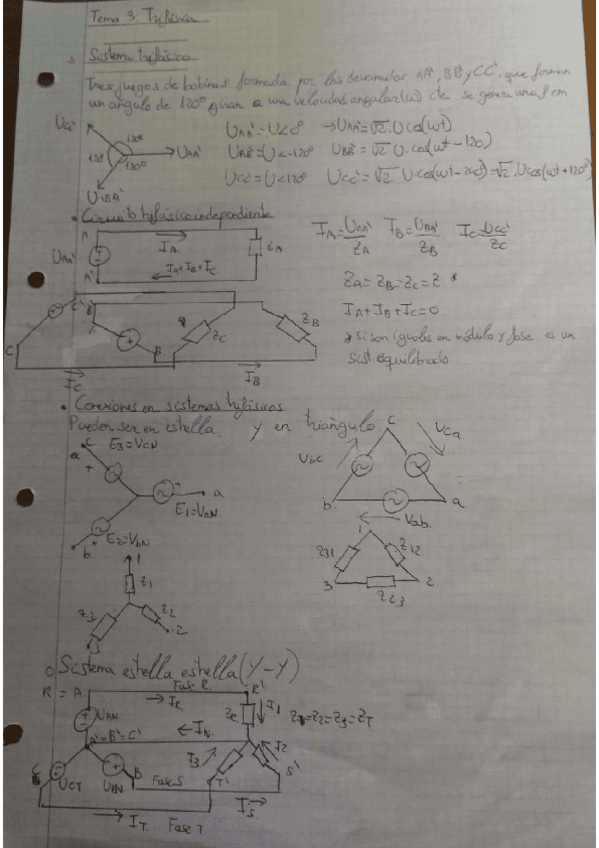 Tema 3: Trifásica
Sistema trifásico
Tres juegos de bobinas formada por los devanados AA', BB' y CC', que forman
un angulo de 120° giran a una velocidad angular (ω) de se genera una fem
UCC'
120°
120°
120°
UAA'
UBB'
UAA' = U∠0° → UAA' = √2 · U cos(ωt)
UBB' = U∠-120° UBB' = √2 U · cos(ωt-120)
UCC' = U∠120° UCC' = √2 U · cos(ωt-240) = √2 · U cos(ωt+120°)
• Circuito trifásico independiente
A
IA
ZA
UAA'
A'
IA+IB+IC
IA = UAA'/ZA IB = UBB'/ZB IC = UCC'/ZC
ZA = ZB = ZC = Z *
IA + IB + IC = 0
* si son iguales en módulo y fase es un
sist equilibrado
C'
B'
C
B
ZC
ZB
IC
IB
• Conexiones en sistemas trifásicos
Pueden ser en estrella y en triángulo
E3 = VCN
c
a
E1 = VaN
E2 = VbN
b
c
Vbc
Vca
b
a
Vab
1
Z1
Z2
2
Z3
3
1
Z31
Z12
3
2
Z23
o Sistema estrella estrella (Y-Y)
R = A
Fase R
R'
IR
I1
UAN
ZR
Z1=Z2=Z3=ZT
A'=B'=C'
IN
I3
I2
UCT
UBN
B
Fase S
T'
S'
IS
IT
Fase T